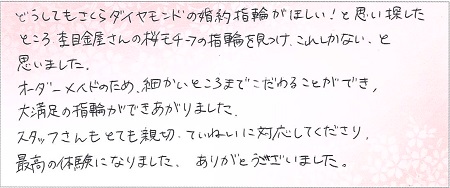 どうしてもさくらダイヤモンドの婚約指輪がほしい！と思い探した
ところ杢目金屋さんの桜モチーフの指輪を見つけ、これしかない、と
思いました。
オーダーメイドのため、細かいところまでこだわることができ、
大満足の指輪ができあがりました。
スタッフさんもとても親切・ていねいに対応してくださり、
最高の体験になりました、ありがとうございました。